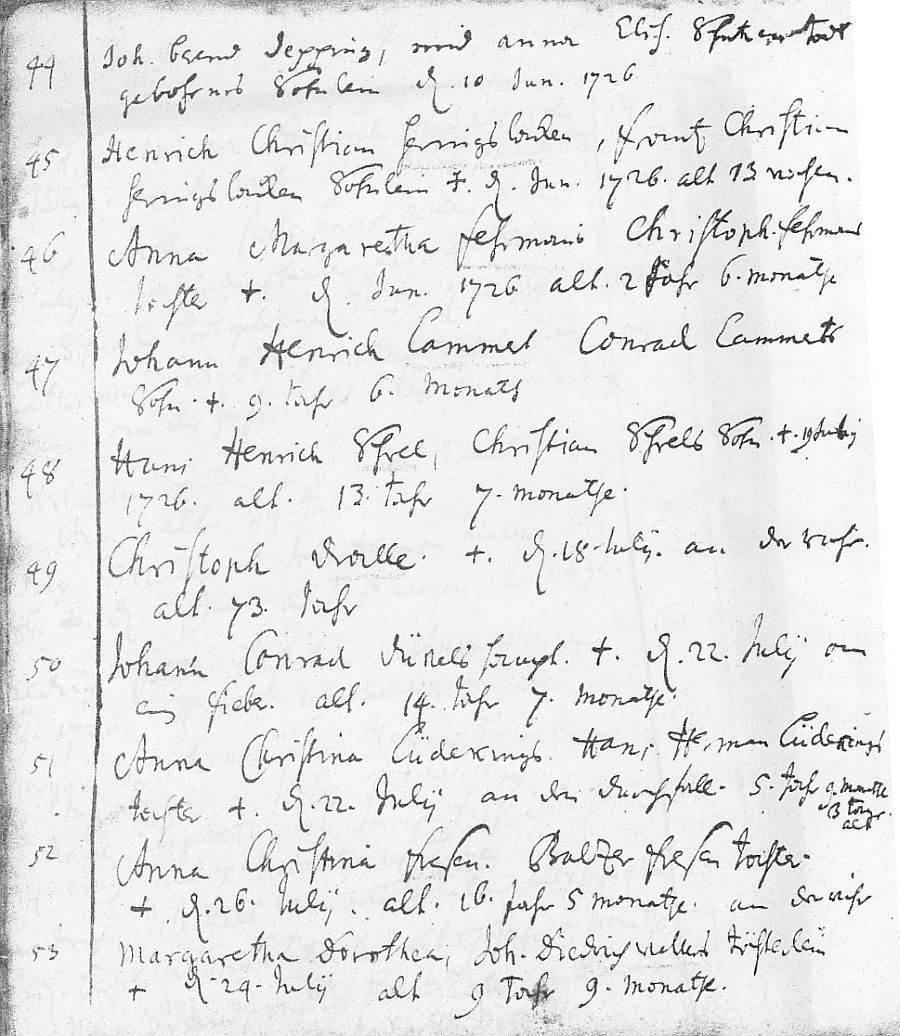 44 Joh. berend Depping, und anna Elis. todt
gebohrnes Söhnlein d. 10 Jun. 1726
45 Henrich Christian , frantz Christian
Söhnlein +. d. Jun. 1726. alt 13 wochen.
46 Anna Margaretha fehrmans Christoph. fehrmans
tochter +. d. Jun. 1726 alt. 2 Jahr 6. monathe
47 Johann Henrich Cammet Conrad Cammets
Sohn. +. 9. Jahr 6. Monats
48 Hans Henrich , Christian Sohn. +. 19 July
1726. alt. 13. Jahr 7. monathe.
49 Christoph +. d. 18. July. an der ruhr.
alt. 73. Jahr
50 Johann Conrad +. d. 22. July an
ein fieber. alt. 14. Jahr 7. Monathe.
51 Anna Christina Lüdekings. Hans Herman Lüdekings
tochter +. d. 22. July an den durchfall. 5. Jahr 9. monathe
13 tage
alt
52 Anna Christina fresen. Balzer fresen tochter.
+ d. 26. July. alt. 16. Jahr 5 monathe. an der ruhr
53 Margaretha Dorothea, Joh. Diedrich töchterlein
+ d. 29. July alt 9 Jahr 9. monathe.